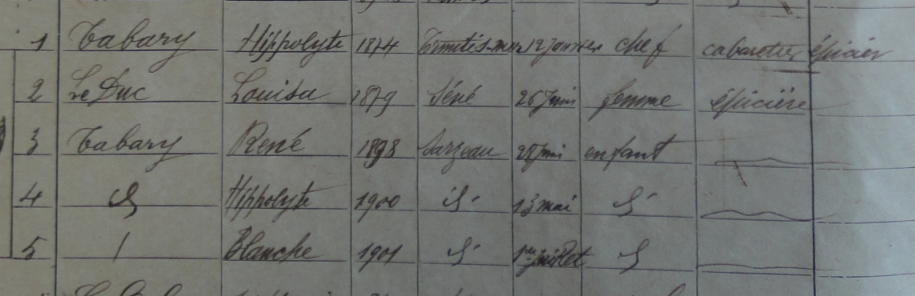 1 Tabary Hippolyte 1874 12 janvier chef cabaretier épicier
2 Le Duc Louisa 1879 Séné 26 juin femme épicière
3 Tabary René 1898 Sarzeau enfant
4 d° Hippolyte 1900 d° 13 mai d°
5 Blanche 1901 d° 1er juillet d°